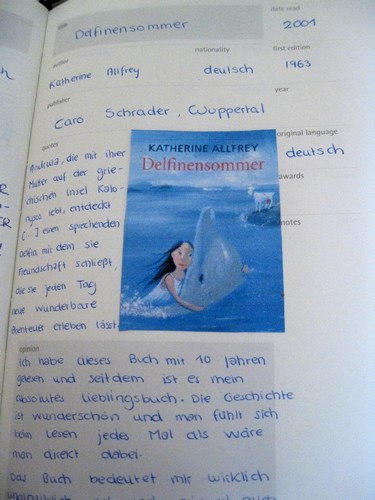 title
date read
Delfinensommer
2001
author
nationality
first edition
Katherine Allfrey
deutsch
1963
publisher
year
Caro Schrader, Wuppertal
original language
deutsch
awards
notes
quotes
Andrula, die mit ihrer
Mutter auf der grie-
chischen Insel Kalo-
nysos lebt, entdeckt
[...] einen sprechenden
Delfin mit dem sie
Freundschaft schließt,
die sie jeden Tag
neue wunderbare
Abenteuer erleben lässt.
KATHERINE ALLFREY
Delfinensommer
opinion
Ich habe dieses Buch mit 10 Jahren
gelesen und seitdem ist es mein
absolutes Lieblingsbuch. Die Geschichte
ist wunderschön und man fühlt sich
beim Lesen jedes Mal als wäre
man direkt dabei.
Das Buch bedeutet mir wirklich